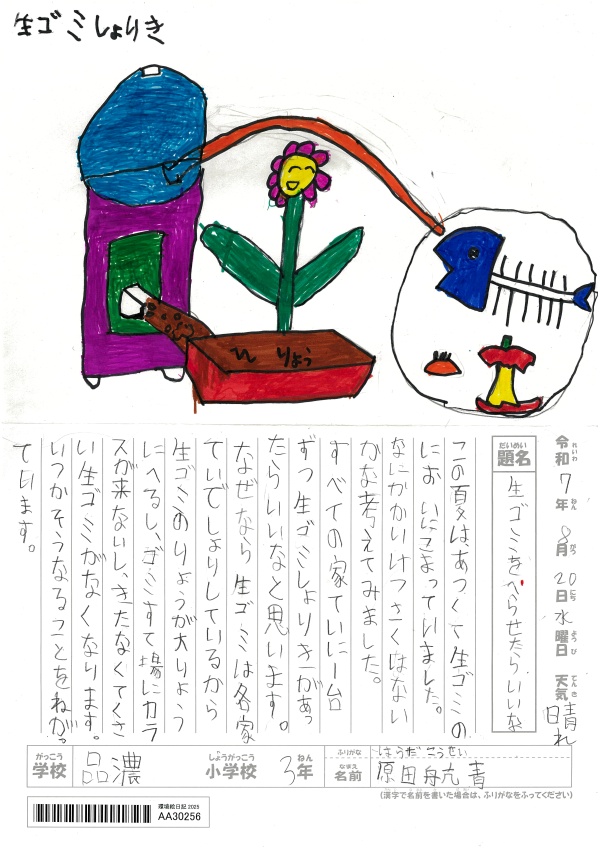 生ゴミしょりき
ひりょう
令和7年8月20日水曜日 天気 晴れ
れいわ ねん がつ にち ようび てんき
題名 生ゴミをへらせたらいいな
だいめい
この夏は、あつくて生ゴミの
においにこまっていました。
なにかかいけつさくはない
かな考えてみました。
すべての家ていに一台
ずつ生ゴミしょりきがあっ
たらいいなと思います。
なぜなら生ゴミは各家
ていでしょりしているから
生ゴミのりょうが大りょう
にへるし、ゴミすて場にカラ
スが来ないし、きたなくてくさ
い生ゴミがなくなります。
いつかそうなることをねがっ
ています。
がっこう しょうがっこう ねん ふりがな はらだ こうせい
学校 品濃 小学校 3年 なまえ 名前 原田航青
(漢字で名前を書いた場合は、ふりがなをふってください)
環境絵日記 2025
AA30256